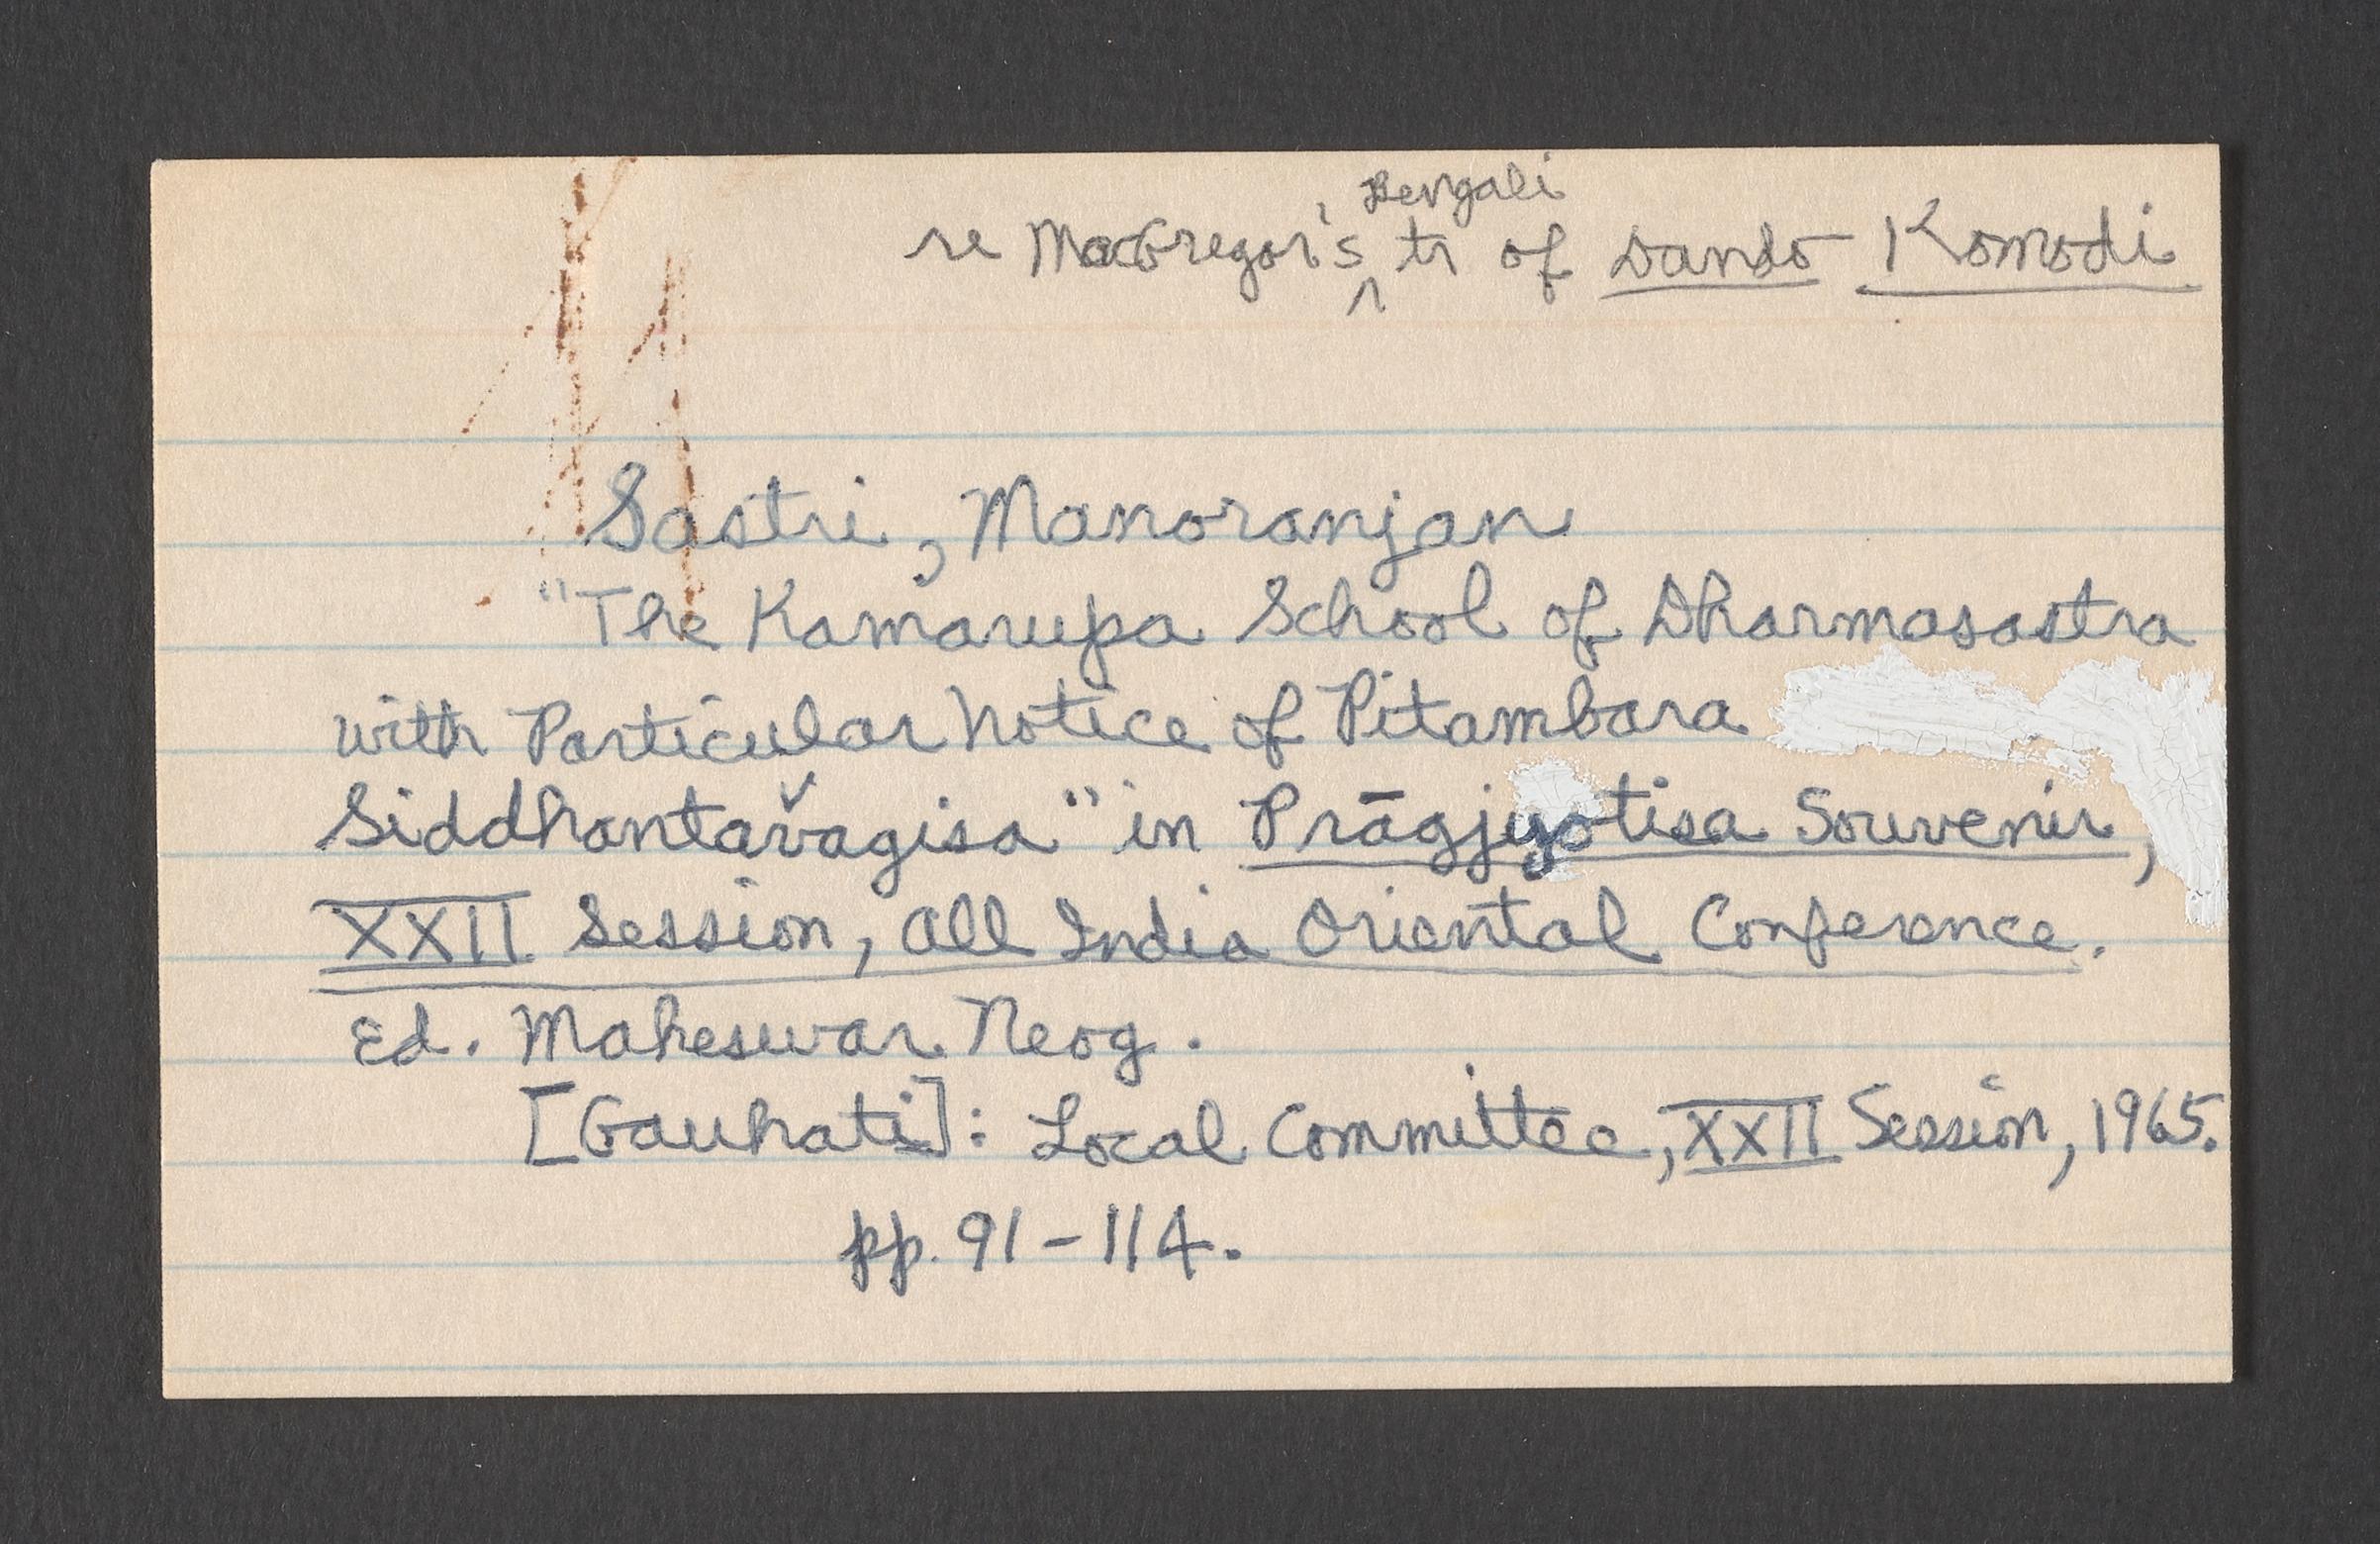 Bengali
re MacGregor's ^ tr of Dando Komodi
Sastri, Manoranjan
"The Kamarupa School of Dharmasastra
with Particular Notice of Pitambara
Siddhantavagisa" in Prāgjyotisa Souvenir,
XXII Session, All India Oriental Conference.
Ed. Maheswar Neog.
[Gauhati]: Local Committee, XXII Session, 1965.
pp. 91-114.